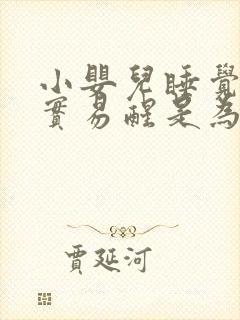 小嬰兒睡覺
實易醒是為
賈延河